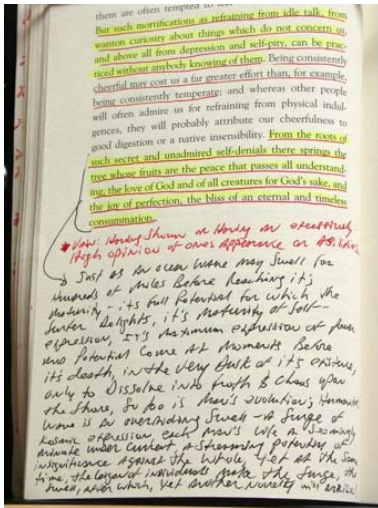 them are often tempted to
But such mortifications as refraining from idle talk, from
wanton curiosity about things which do not concern us,
and above all from depression and self-pity, can be prac-
ticed without anybody knowing of them. Being consistently
cheerful may cost us a far greater effort than, for example,
being consistently temperate; and whereas other people
will often admire us for refraining from physical indul-
gences, they will probably attribute our cheerfulness to
good digestion or a native insensibility. From the roots of
such secret and unadmired self-denials there springs the
tree whose fruits are the peace that passes all understand-
ing, the love of God and of all creatures for God's sake, and
the joy of perfection, the bliss of an eternal and timeless
consummation.
Vain: Having Shown or Having an excessively
High opinion of ones Apperance or Abilities
Just as an ocean wave may Swell for
Hundreds of miles Before Reaching it's
maturity - its full Potential for which the
Surfer Delights, it's maturity of Self-
expression, It's maximum expression of power
and Potential Come at moments Before
it's death, in the very Dusk of it's existure,
only to Dissolve into froth & Chaos upon
the Shore, So too is Man's evolution; Humanities
wave is an overriding Swell - A Surge of
Cosmic expression, each man's life a Seemingly
minute under current, a Streaming Potential of
insignificance Against the Whole, yet at the Same
time, the legion of individuals make the Surge, the
Swell, After which, Yet Another Novelty will arise